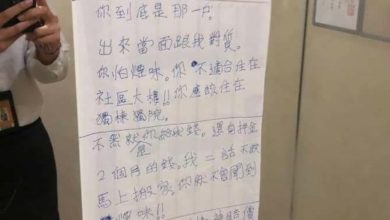 你到底是那一戶
出來當面跟我對質。
你怕煙味,你不適合住在
社區大樓!!你應該住在
獨棟醫院。
不然就你給我錢,還有押金
2個月的錢,我二話不說
馬上搬家,你就不會聞到
煙味!!